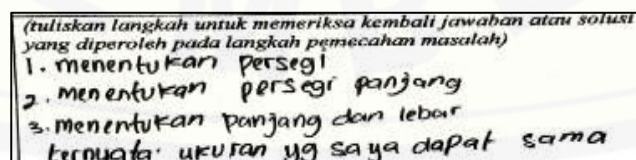 (tuliskan langkah untuk memeriksa kembali jawaban atau solusi
yang diperoleh pada langkah pemecahan masalah)
1. menentukan persegi
2. menentukan persegi panjang
3. menentukan panjang dan lebar
ternyata. ukuran yg saya dapat sama